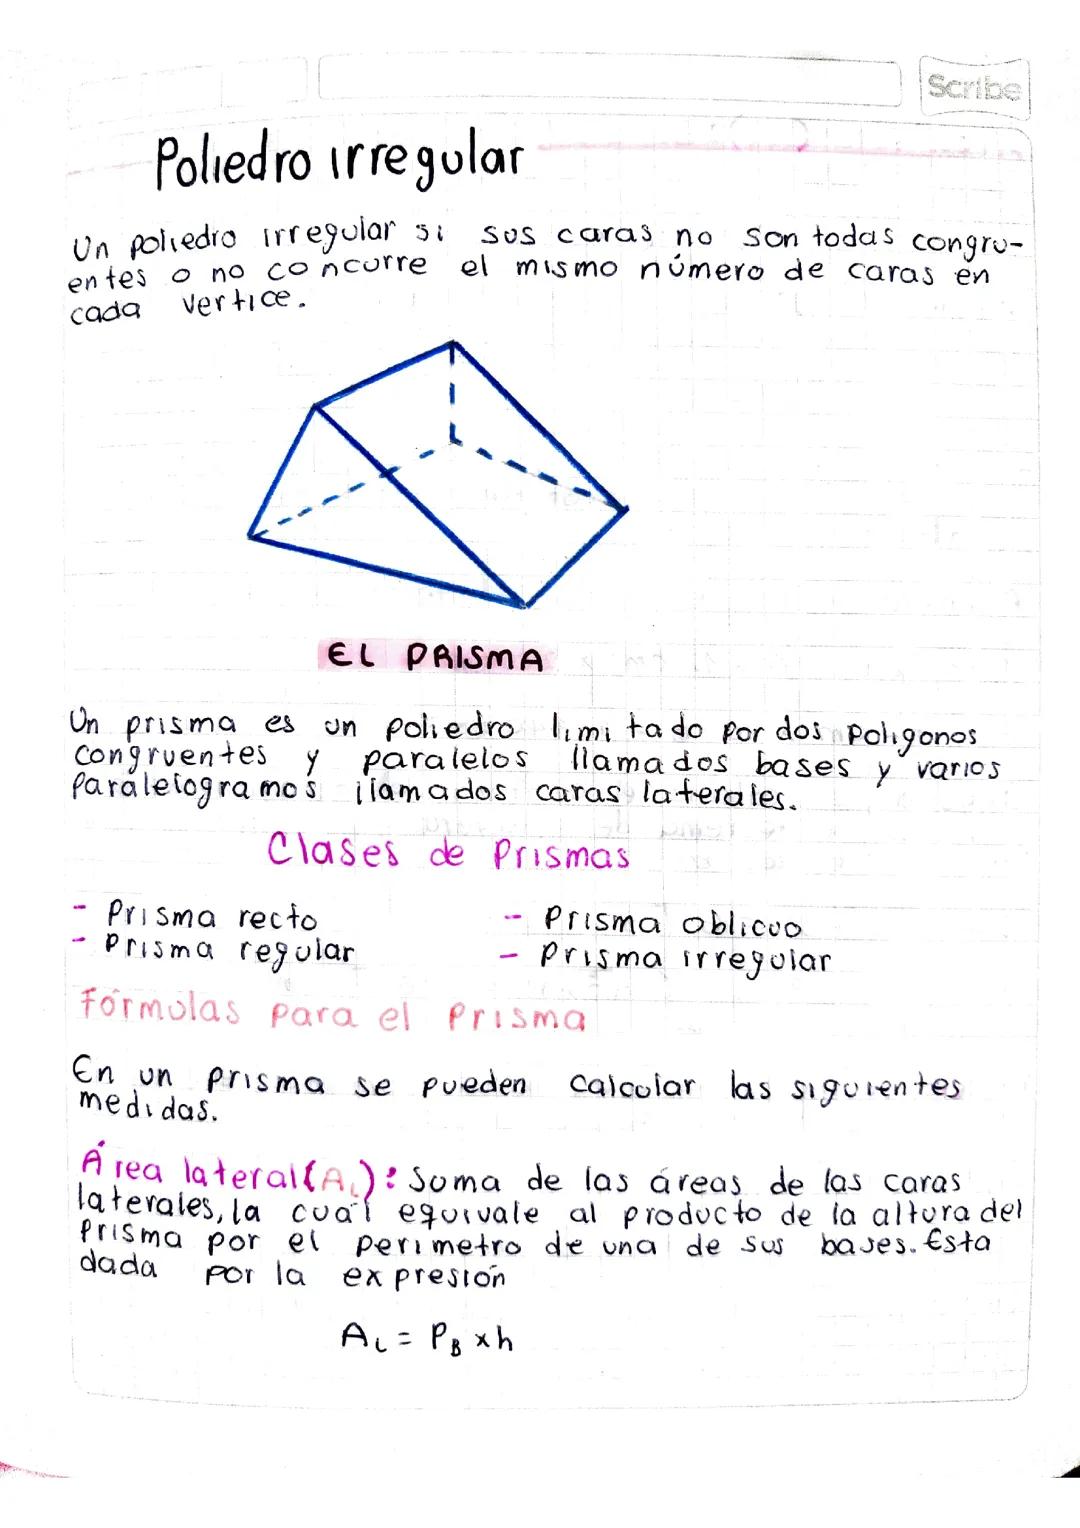 Scribe
Poliedro irregular
Un poliedro irregular si sus caras no son todas congru-
entes o no concurre el mismo número de caras en
cada vertice.
EL PRISMA
Un prisma es un poliedro limitado por dos poligonos
congruentes y paralelos llamados bases y varios
Paralelogramos llamados caras laterales.
Clases de Prismas
- Prisma recto
- Prisma oblicuo
- Prisma regular
- Prisma irregular
Fórmulas para el Prisma
En un prisma se pueden calcular las siguientes
medidas.
Área lateral (AL): Suma de las áreas de las caras
laterales, la cual equivale al producto de la altura del
Prisma por el perimetro de una de sus bases. Esta
dada por la expresión
AL = PB x h